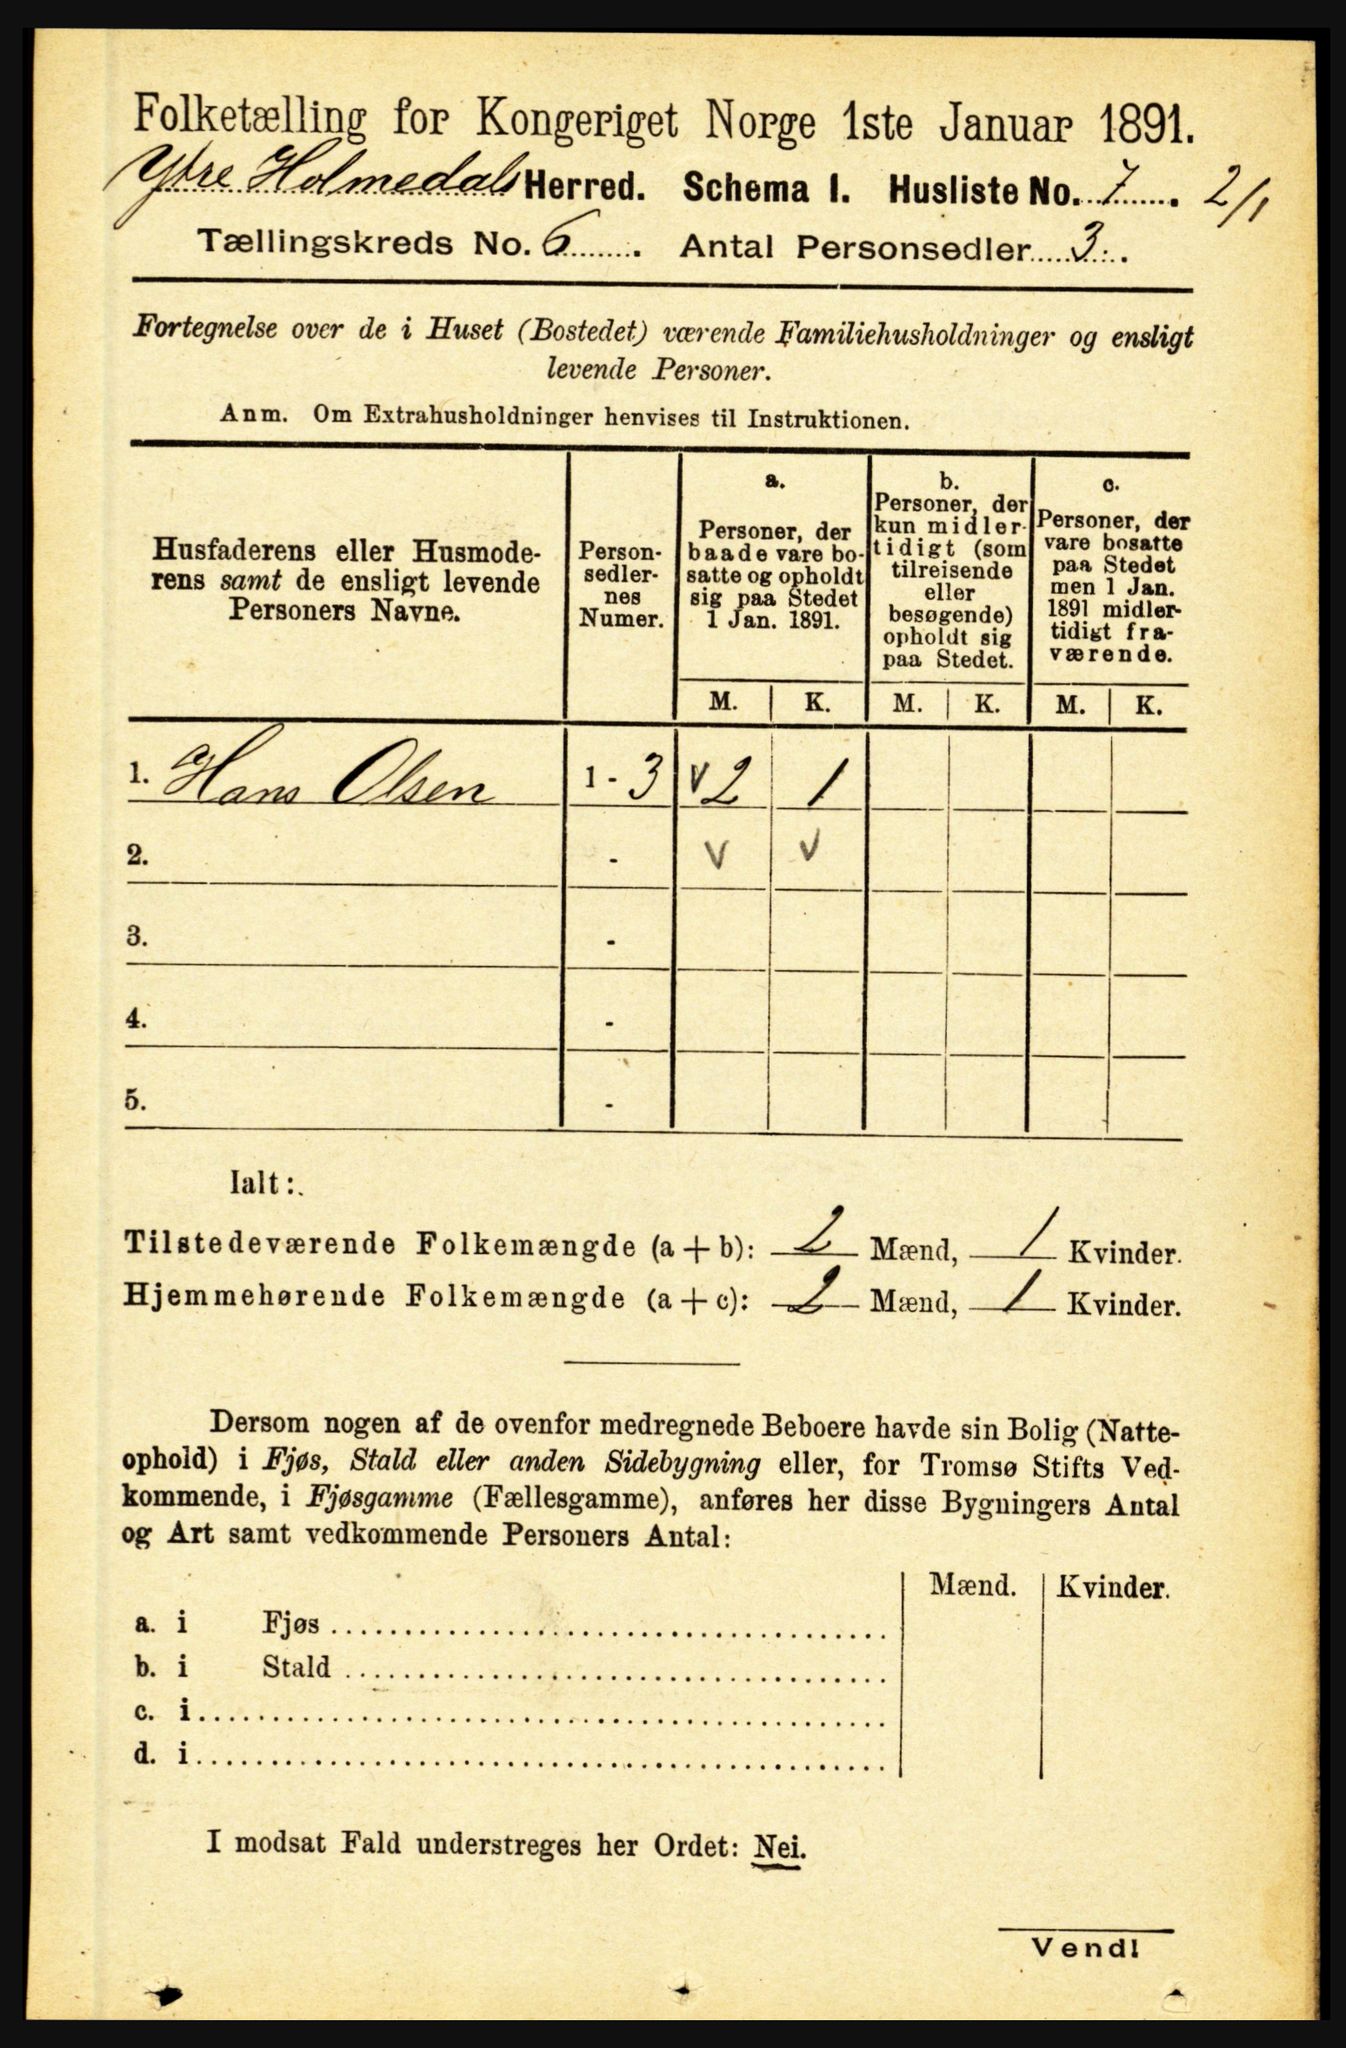 Folketælling for Kongeriget Norge 1ste Januar 1891.
Ytre Holmedals Herred. Schema I. Husliste No. 7. 2/1
Tællingskreds No. 6. Antal Personsedler 3.
Fortegnelse over de i Huset (Bostedet) værende Familiehusholdninger og ensligt
levende Personer.
Anm. Om Extrahusholdninger henvises til Instruktionen.
Husfaderens eller Husmode-
rens samt de ensligt levende
Personers Navne.
Person-
sedler-
nes
Numer.
a.
Personer, der
baade vare bo-
satte og opholdt
sig paa Stedet
1 Jan. 1891.
b.
Personer, der
kun midler-
tidigt (som
tilreisende
eller
besøgende)
opholdt sig
paa Stedet.
c.
Personer, der
vare bosatte
paa Stedet
men 1 Jan.
1891 midler-
tidigt fra-
værende.
M. K. M. K. M. K.
1. Hans Olsen 1 - 3 v 2 1
2. - v v
3. -
4. -
5. -
Ialt:.
Tilstedeværende Folkemængde (a + b): 2 Mænd, 1 Kvinder.
Hjemmehørende Folkemængde (a + c): 2 Mænd, 1 Kvinder.
Dersom nogen af de ovenfor medregnede Beboere havde sin Bolig (Natte-
ophold) i Fjøs, Stald eller anden Sidebygning eller, for Tromsø Stifts Ved-
kommende, i Fjøsgamme (Fællesgamme), anføres her disse Bygningers Antal
og Art samt vedkommende Personers Antal:
Mænd. Kvinder.
a. i Fjøs
b. i Stald
c. i
d. i
I modsat Fald understreges her Ordet: Nei.
Vend!